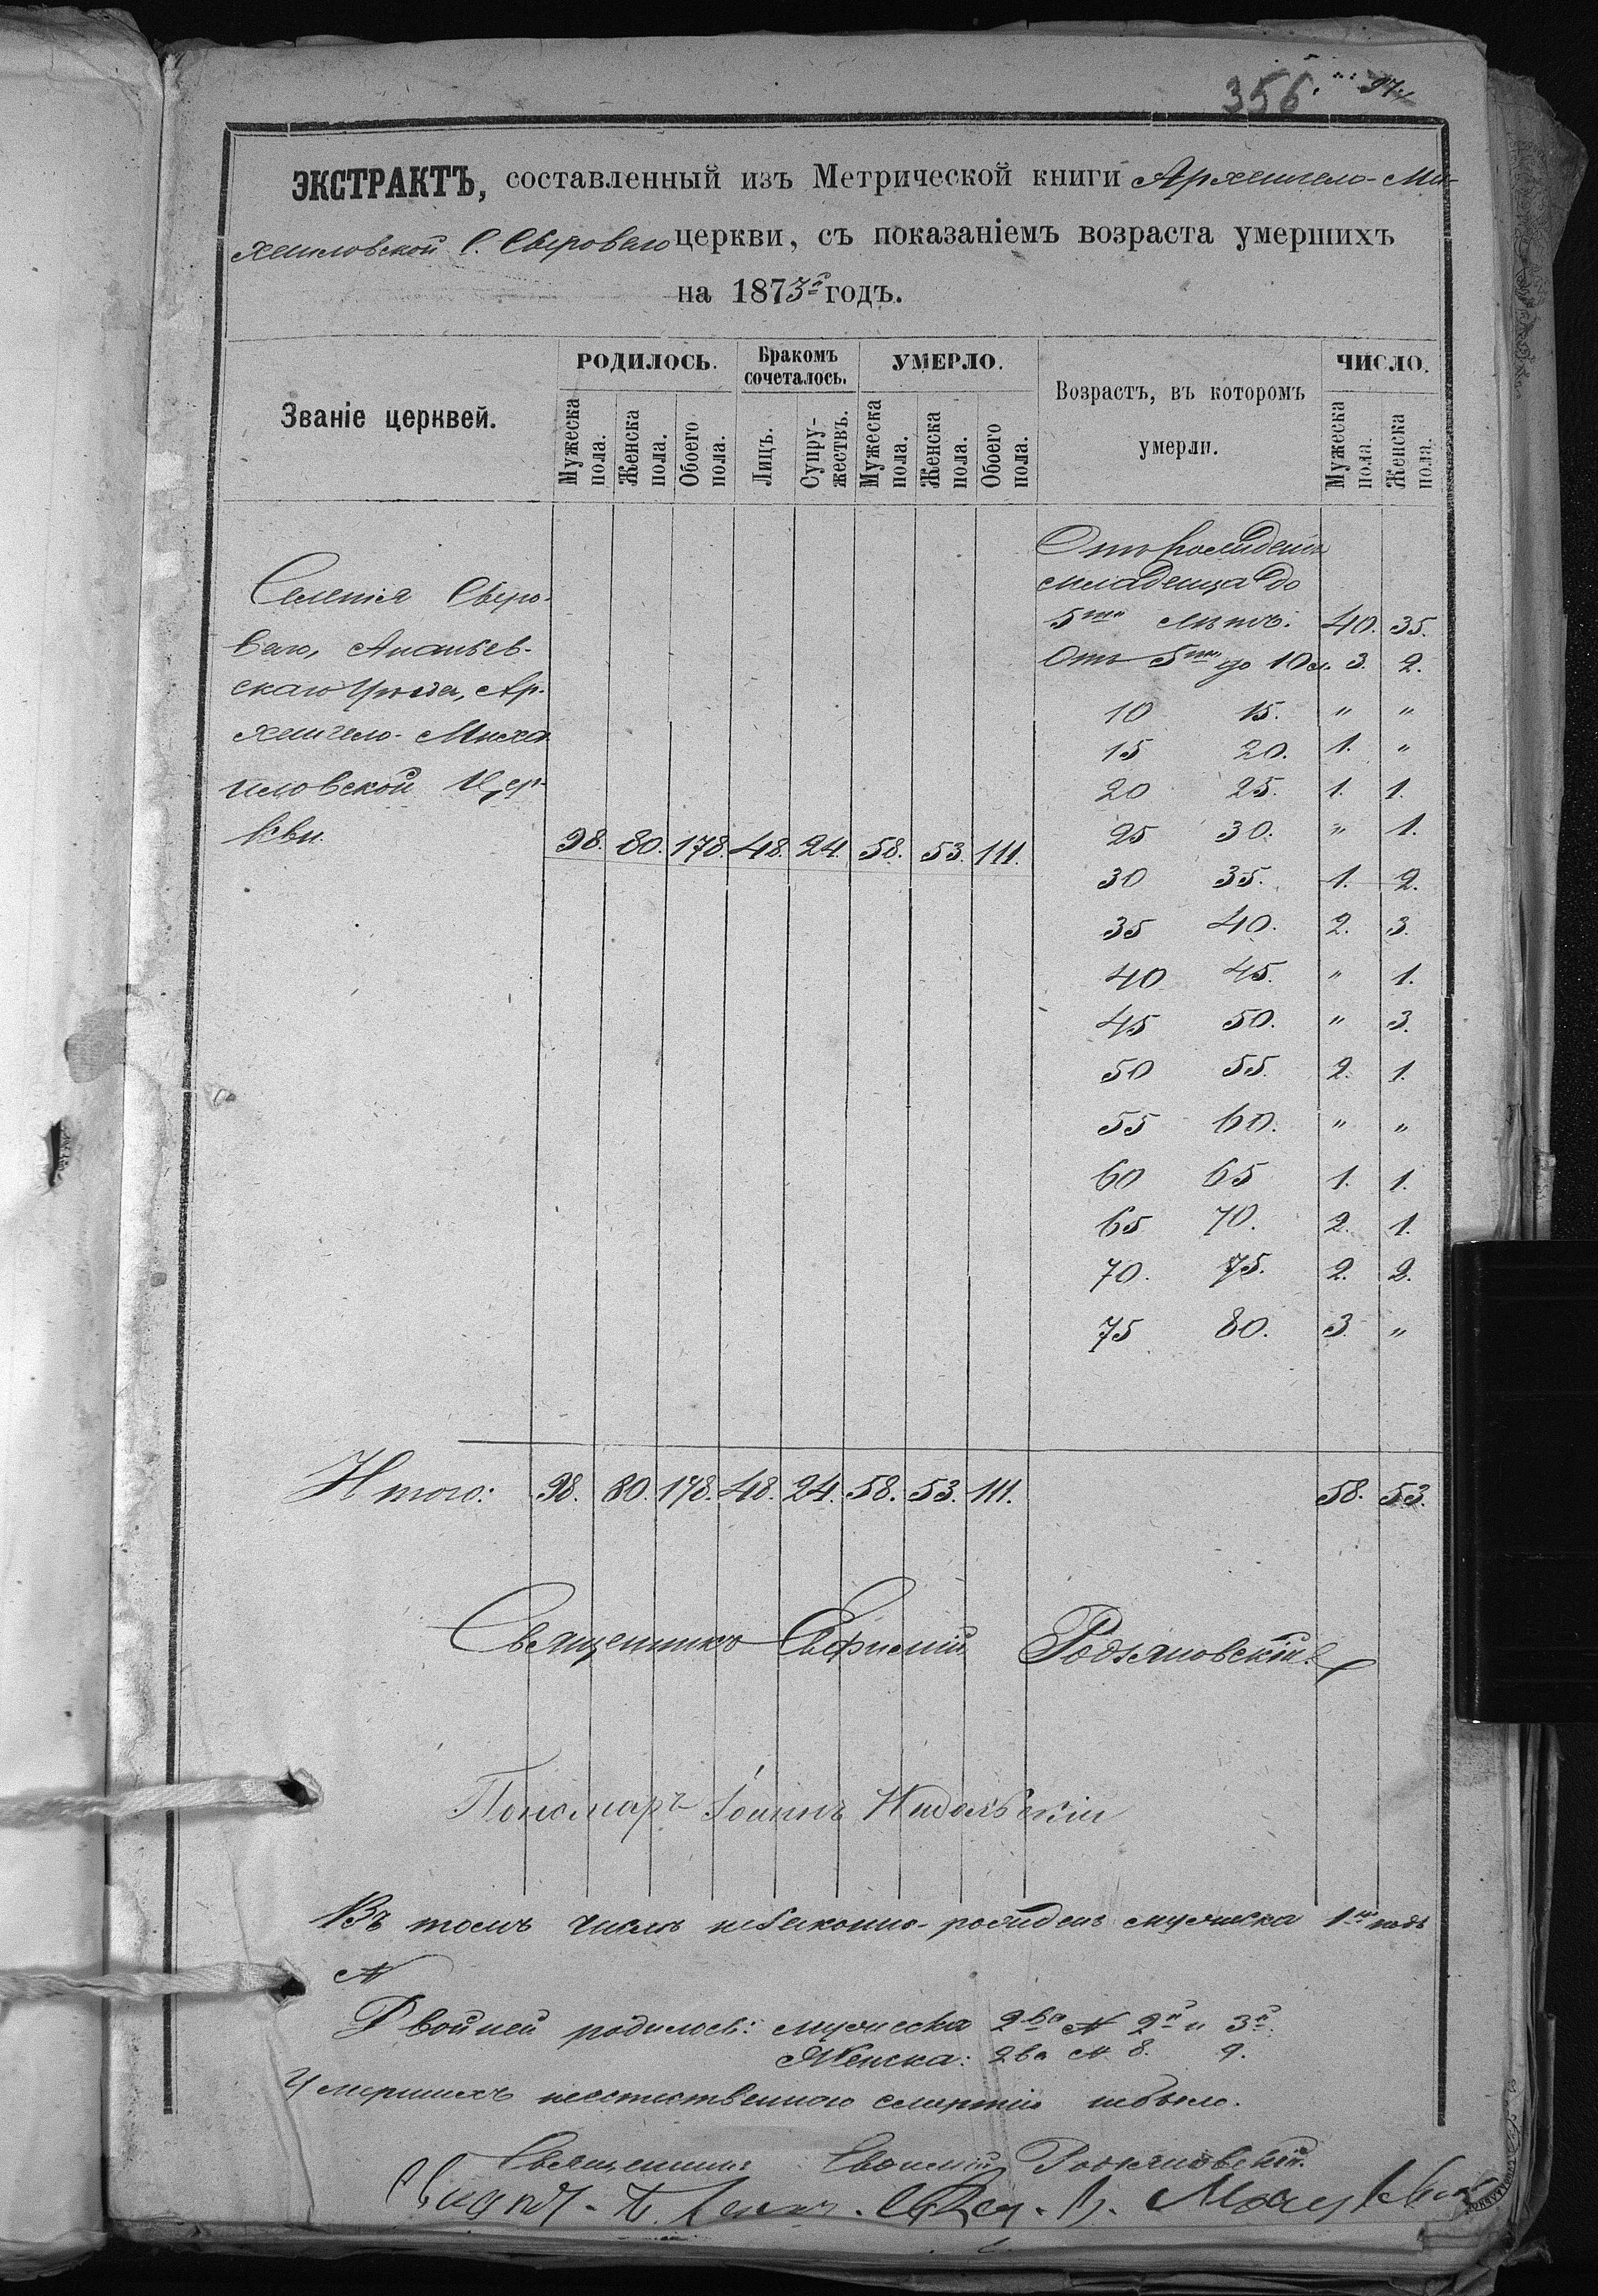 356. 97.
ЭКСТРАКТЪ, составленный изъ Метрической книги Архангело-Ми-
хаиловской С. Сырового церкви, съ показаніемъ возраста умершихъ
на 1873й годъ.
Званіе церквей.
РОДИЛОСЬ.
Бракомъ сочеталось.
УМЕРЛО.
Возрастъ, въ которомъ умерли.
ЧИСЛО.
Мужеска пола.
Женска пола.
Обоего пола.
Лицъ.
Супружествъ.
Мужеска пола.
Женска пола.
Обоего пола.
Мужеска пола.
Женска пола.
Селенія Сыро-
вого, Ананьев-
скаго Уѣзда, Ар-
хангело-Миха
иловской Цер-
кви. 98. 80. 178. 48. 24. 58. 53. 111.
Отъ рожденія
младенца до
5ти лѣтъ. 40. 35.
Отъ 5ти до 10л. 3. 2.
10 15. " "
15 20. 1. "
20 25. 1. 1.
25 30. " 1.
30 35. 1. 2.
35 40. 2. 3.
40 45. " 1.
45 50. " 3.
50 55. 2. 1.
55 60. " "
60 65 1. 1.
65 70. 2. 1.
70. 75. 2. 2.
75 80. 3. "
Итого: 98. 80. 178. 48. 24. 58. 53. 111. 58. 53.
Священникъ Евфимій Родзяновскій
Пономарь Іоаннъ
Въ томъ числѣ незаконно-рожденъ мужеска 1нъ подъ
N
Двойней родилось: мужеска 2ва N 2й и 3й.
Женска: 2ва N 8. 9.
Умершихъ неестественною смертію небыло.
Священникъ Евфимій Родзяновскій.